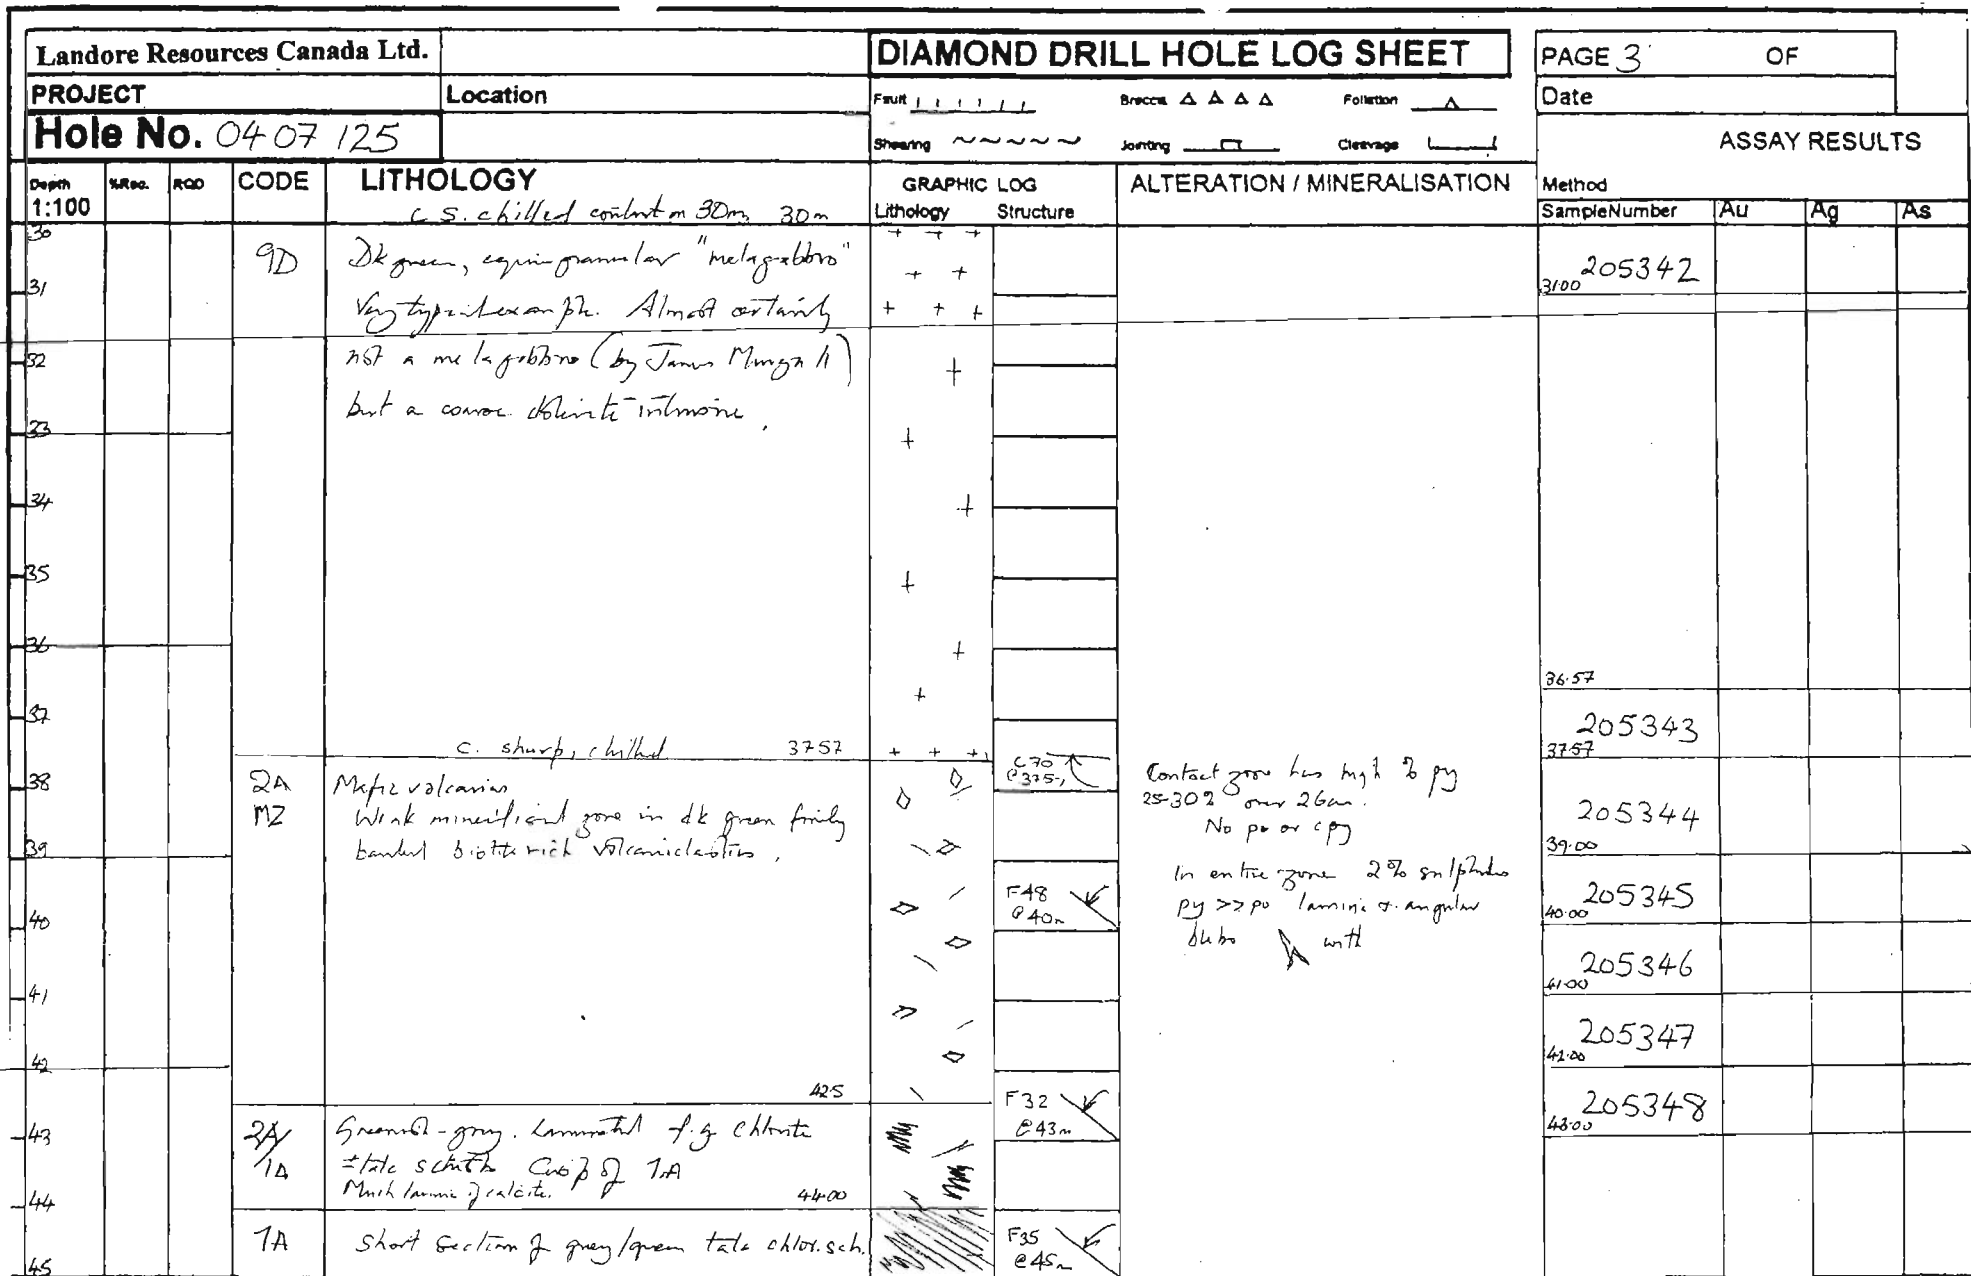 Landore Resources Canada Ltd.
DIAMOND DRILL HOLE LOG SHEET
PAGE 3 OF
PROJECT
Location
Date
Fault
Breccia
Foliation
Hole No. 0407 125
Shearing
Jointing
Cleavage
ASSAY RESULTS
Depth 1:100
%Rec.
RQD
CODE
LITHOLOGY
GRAPHIC LOG
Lithology Structure
ALTERATION / MINERALISATION
Method
SampleNumber Au Ag As
C S. chilled contact on 30m, 30m
30
9D
Dk green, equigranular "melagabbro"
31
Very typical example. Almost certainly
32
not a melagabbro (by James
but a coarse dolerite intrusive.
33
34
35
36
37
c. sharp, chilled 37.57
38
2A
MZ
Mafic volcanics
Weak mineralized zone in dk green finely
39
banded biotite rich volcaniclastics.
40
41
42
42.5
43
2A/
1A
Greenish-grey. Laminated f.g chlorite
± talc schists of 1A
44
Much lamine of calcite. 44.00
1A
Short section of grey/green talc chlor. sch.
45
C70
F48
@40m
F32
@43m
F35
@45m
Contact zone has high % py
25-30% over 26cm.
No po or cpy
In entire zone 2% sulphides
py >>po
with
205342
31.00
36.57
205343
37.57
205344
39.00
205345
40.00
205346
41.00
205347
42.00
205348
43.00